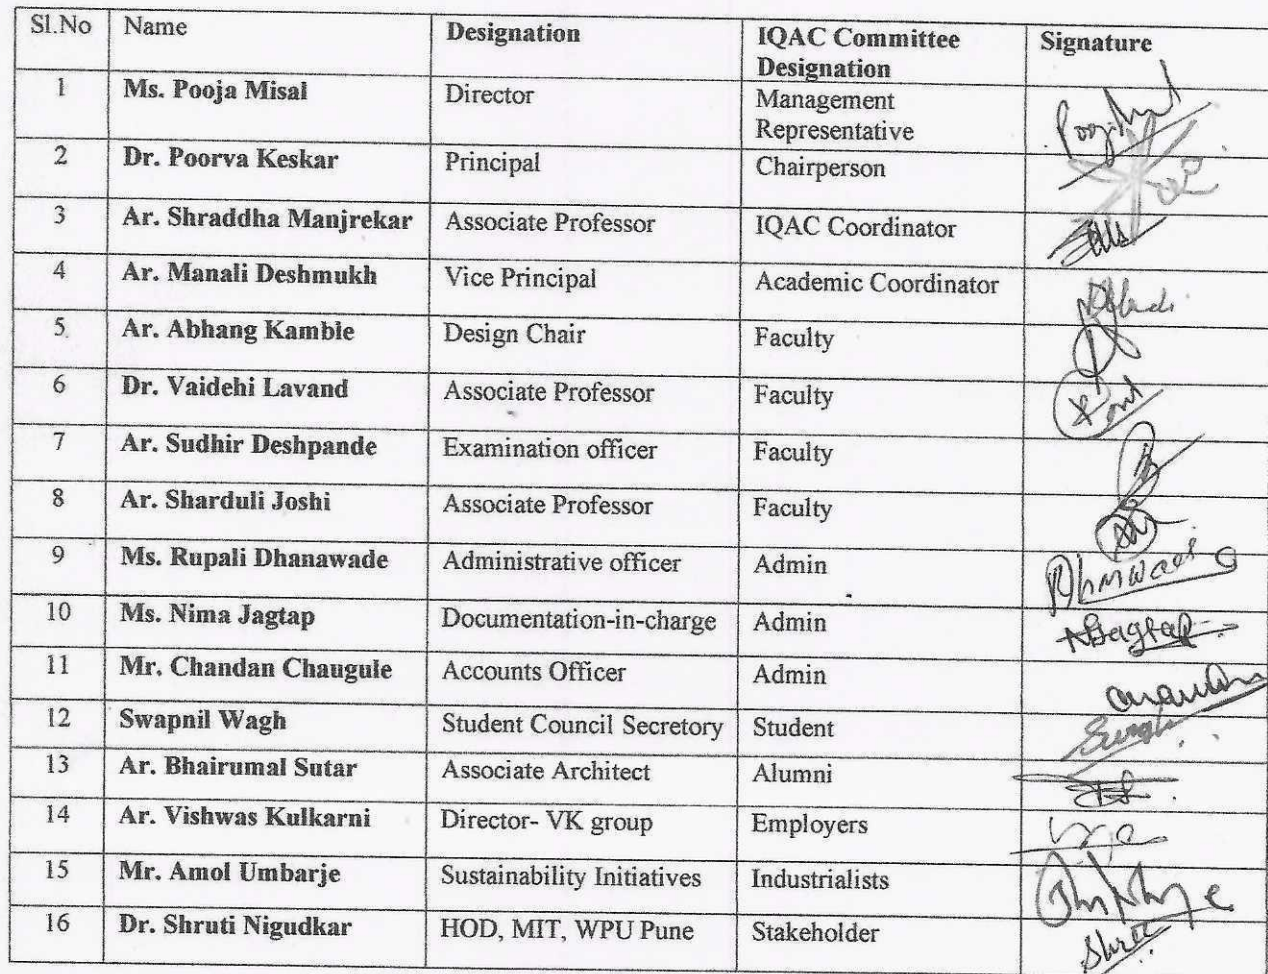 Sl.No Name Designation IQAC Committee Designation Signature
1 Ms. Pooja Misal Director Management Representative
2 Dr. Poorva Keskar Principal Chairperson
3 Ar. Shraddha Manjrekar Associate Professor IQAC Coordinator
4 Ar. Manali Deshmukh Vice Principal Academic Coordinator
5 Ar. Abhang Kamble Design Chair Faculty
6 Dr. Vaidehi Lavand Associate Professor Faculty
7 Ar. Sudhir Deshpande Examination officer Faculty
8 Ar. Sharduli Joshi Associate Professor Faculty
9 Ms. Rupali Dhanawade Administrative officer Admin
10 Ms. Nima Jagtap Documentation-in-charge Admin
11 Mr. Chandan Chaugule Accounts Officer Admin
12 Swapnil Wagh Student Council Secretory Student
13 Ar. Bhairumal Sutar Associate Architect Alumni
14 Ar. Vishwas Kulkarni Director- VK group Employers
15 Mr. Amol Umbarje Sustainability Initiatives Industrialists
16 Dr. Shruti Nigudkar HOD, MIT, WPU Pune Stakeholder